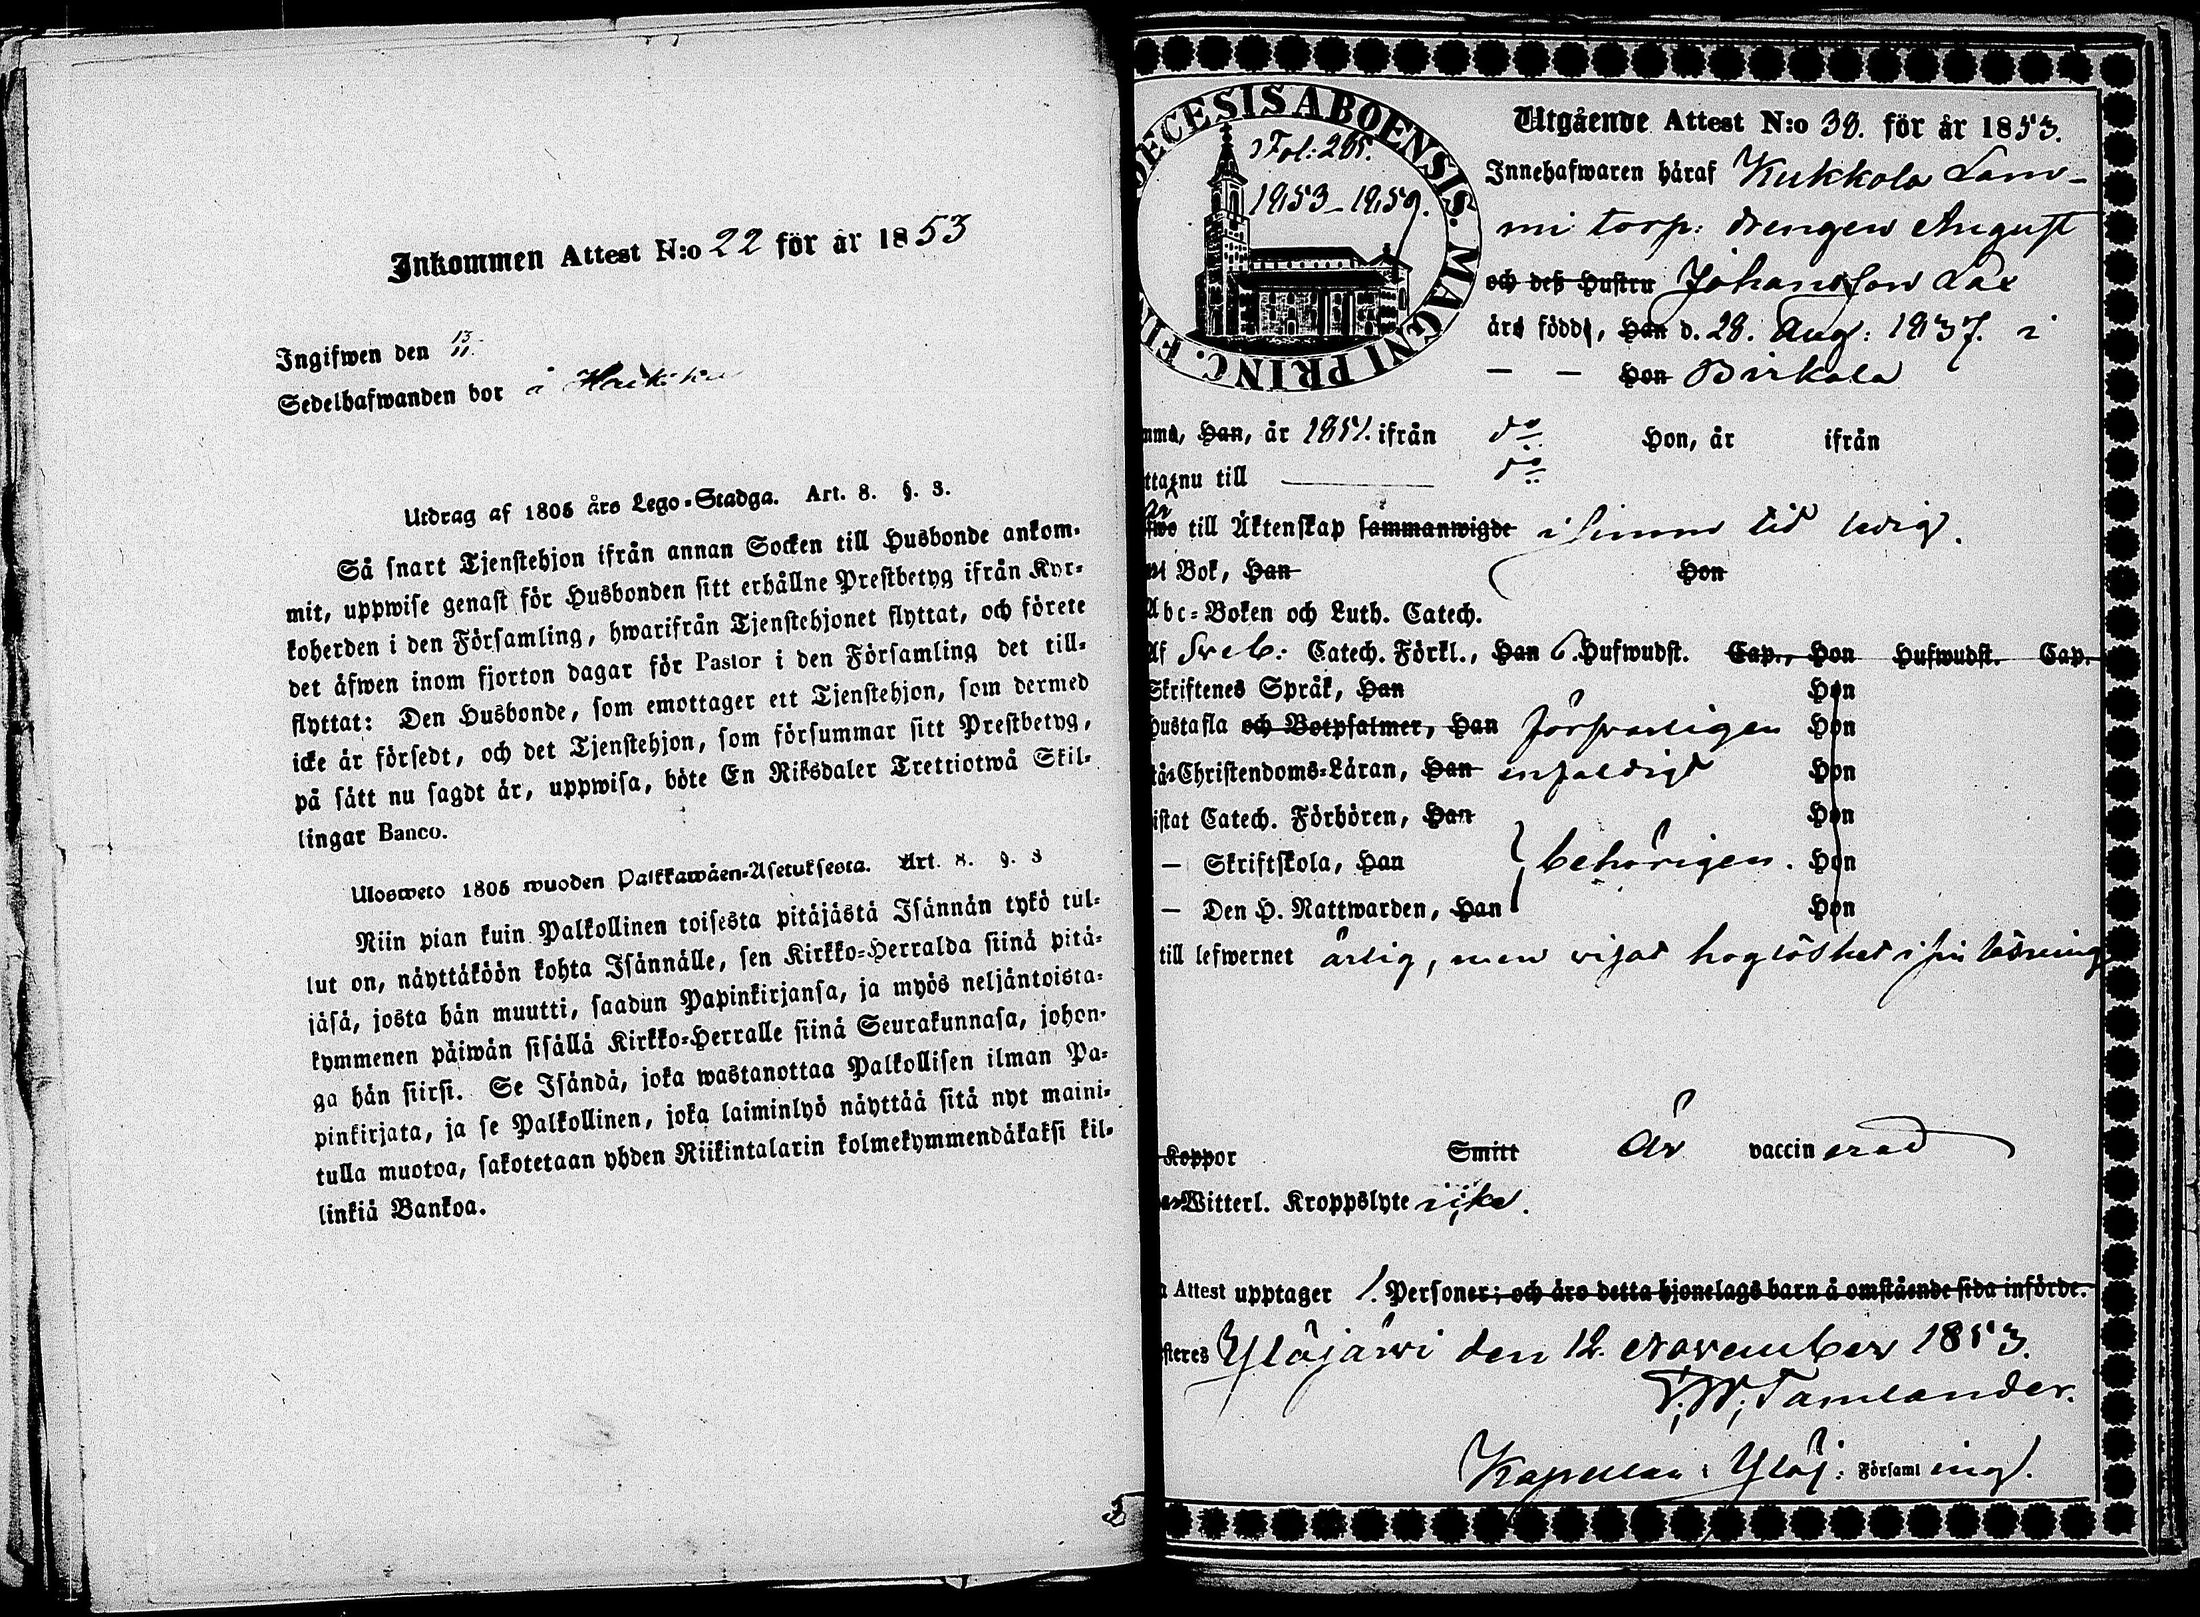 Inkommen Attest N:o 22 för år 1853
Ingifwen den 13/11.
Sedelhafwanden bor å
Utdrag af 1805 års Lego-Stadga. Art. 8. §. 3.
Så snart Tjenstehjon ifrån annan Socken till Husbonde ankom-
mit, uppwise genast för Husbonden sitt erhållne Prestbetyg ifrån Kyr-
koherden i den Församling, hwarifrån Tjenstehjonet flyttat, och förete
det äfwen inom fjorton dagar för Pastor i den Församling det till-
flyttat: Den Husbonde, som emottager ett Tjenstehjon, som dermed
icke är försedt, och det Tjenstehjon, som försummar sitt Prestbetyg,
på sätt nu sagdt är, uppwisa, böte En Riksdaler Trettiotwå Skil-
lingar Banco.
Ulosweto 1805 wuoden Palkkawäen-Asetuksesta. Art. 8. §. 3
Niin pian kuin Palkollinen toisesta pitäjästä Isännän tykö tul-
lut on, näyttäköön kohta Isännälle, sen Kirkko-Herralda siinä pitä-
jäsä, josta hän muutti, saadun Papinkirjansa, ja myös neljäntoista-
kymmenen päiwän sisällä Kirkko-Herralle siinä Seurakunnasa, johon-
ga hän siirsi. Se Isändä, joka wastanottaa Palkollisen ilman Pa-
pinkirjata, ja se Palkollinen, joka laiminlyö näyttää sitä nyt maini-
tulla muotoa, sakotetaan yhden Riikintalarin kolmekymmendäkaksi kil-
linkiä Bankoa.
ECESIS ABOENSIS. MAGNI PRINC. FI
Fol: 265.
1853-1859.
Utgående Attest N:o 38. för år 1853.
Innehafwaren häraf Kukkola Lam-
mi torp: drengen August
och dess Hustru Johansson Lax
äro född, Han d. 28. Aug: 1837. i
— — Hon Birkala
Han, år 1851. ifrån do Hon, år ifrån
nu till do
till Äktenskap sammanwigde i sinom tid ledig.
Bok, Han Hon
Abc-Boken och Luth. Catech.
Af Sveb: Catech. Förkl., Han 6. Hufwudst. Cap., Hon Hufwudst. Cap.
Skriftenes Språk, Han Hon
Hustafla och Botpsalmer, Han försvarligen Hon
Christendoms-Läran, Han enfaldigt Hon
istat Catech. Förhören, Han Hon
— Skriftskola, Han behörigen. Hon
— Den H. Nattwarden, Han Hon
till lefwernet ärlig, men visat hoglöshet i sin läsning
Koppor Smitt Är vaccinerad
Witterl. Kroppslyte icke.
Attest upptager 1. Personer; och äro detta hjonelags barn å omstående sida införde.
steres Ylöjärvi den 12. November 1853.
Tamlander.
Kapellan i Ylöj: Församling.